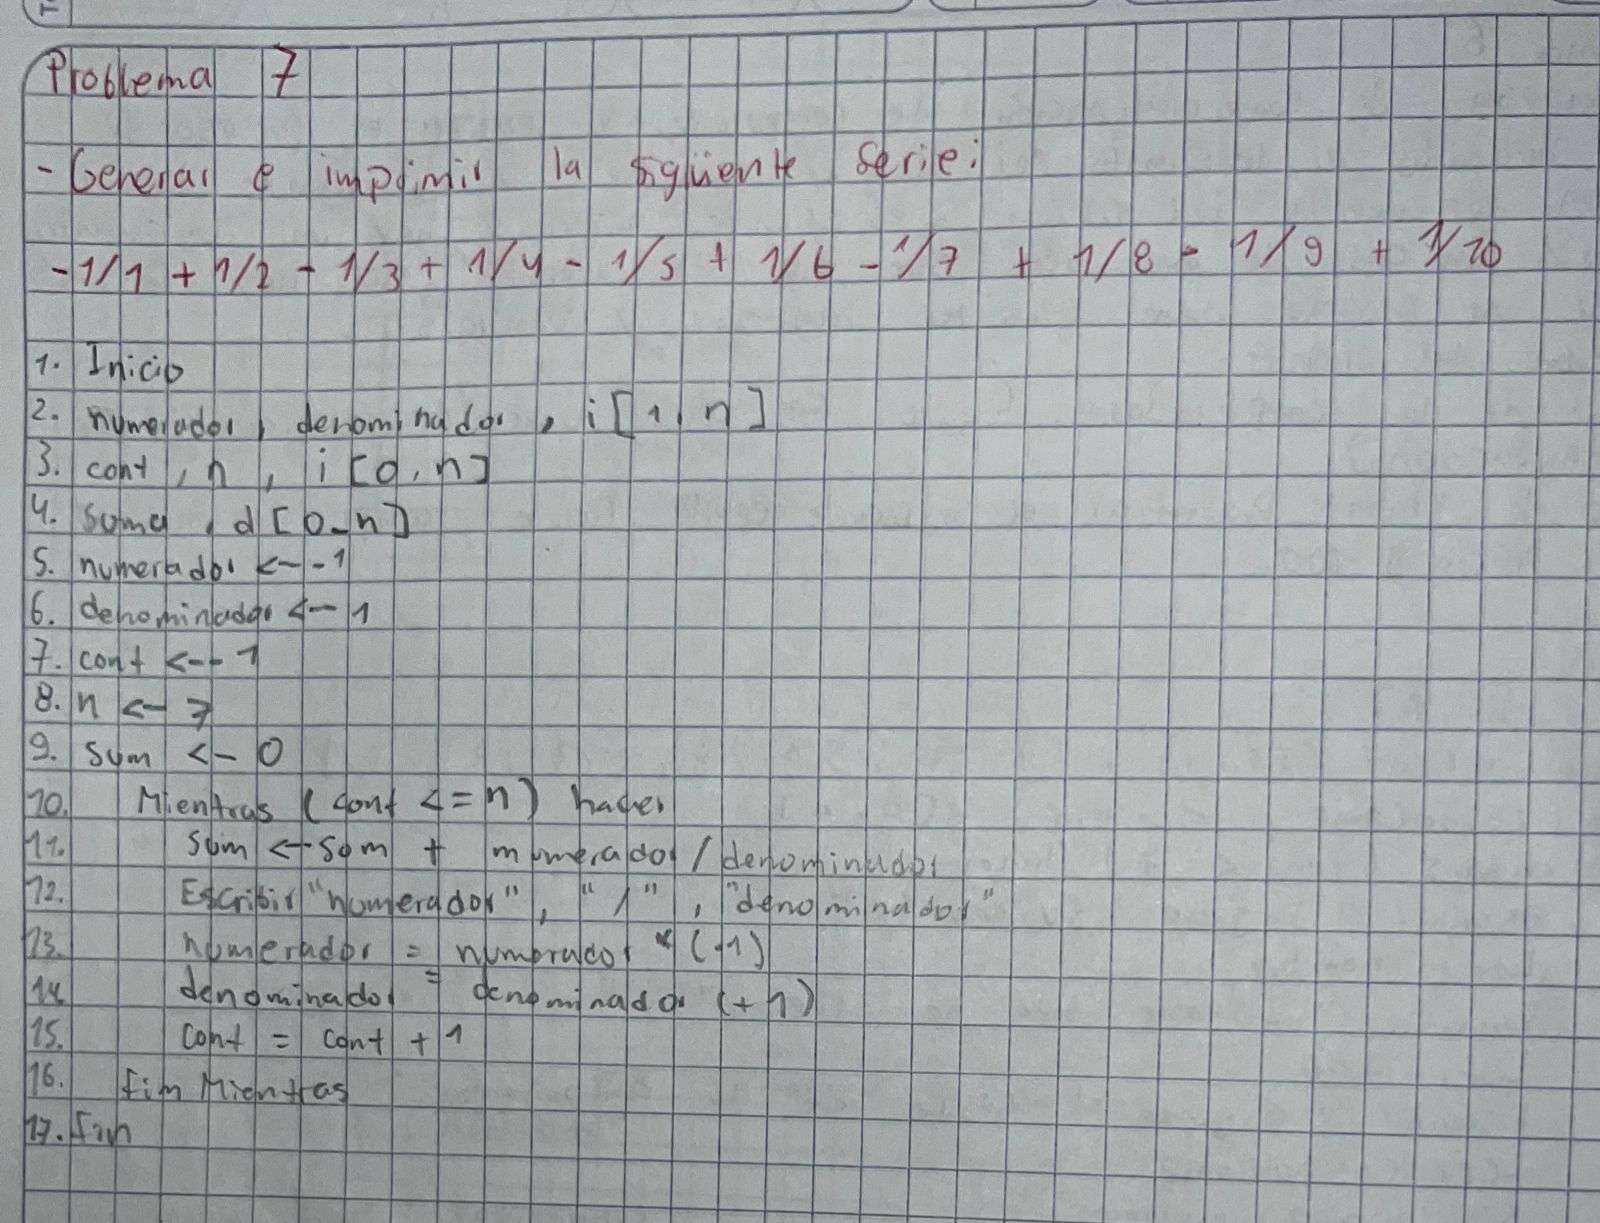 Problema 7
- Generar e imprimir la sigüiente serie:
- 1/1 + 1/2 - 1/3 + 1/4 - 1/5 + 1/6 - 1/7 + 1/8 - 1/9 + 1/10
1. Inicio
2. numerador, denominador, i [1, n]
3. cont, n, i [0, n]
4. suma, d [0-n]
5. numerador <-- -1
6. denominador <-- 1
7. cont <-- 1
8. n <-- 7
9. sum <-- 0
10. Mientras (cont <= n) hacer
11. sum <-- sum + numerador / denominador
12. Escribir "numerador", "/", "denominador"
13. numerador = numerador * (-1)
14. denominador = denominador (+1)
15. cont = cont + 1
16. fin Mientras
17. fin